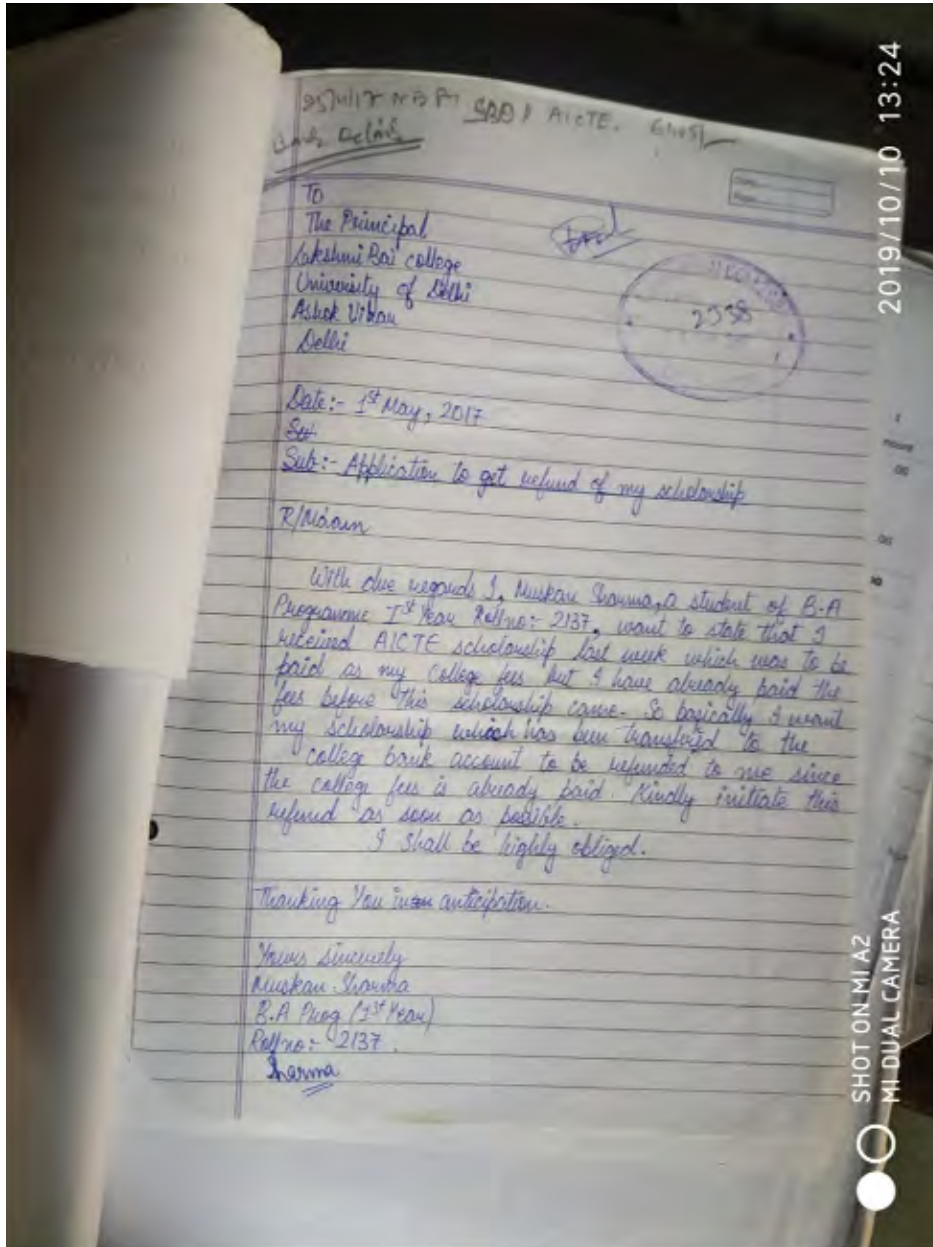 AICTE.
Bank Details
To
The Principal
Lakshmi Bai college
University of Delhi
Ashok Vihar
Delhi
2338
Date:- 1st May, 2017
Sub:- Application to get refund of my scholarship
R/Máam
With due regards I, Muskan Sharma, a student of B.A
Programme Ist Year Rollno: 2137, want to state that I
received AICTE scholarship last week which was to be
paid as my college fees but I have already paid the
fees before this scholarship came. So basically I want
my scholarship which has been transfered to the
college bank account to be refunded to me since
the college fees is already paid. Kindly initiate this
refund as soon as posible.
I Shall be highly obliged.
Thanking You in anticipation.
Yours sincerely
Muskan Sharma
B.A Prog (1st Year)
Rollno:- 2137.
Sharma
2019/10/10 13:24
SHOT ON MI A2
MI DUAL CAMERA